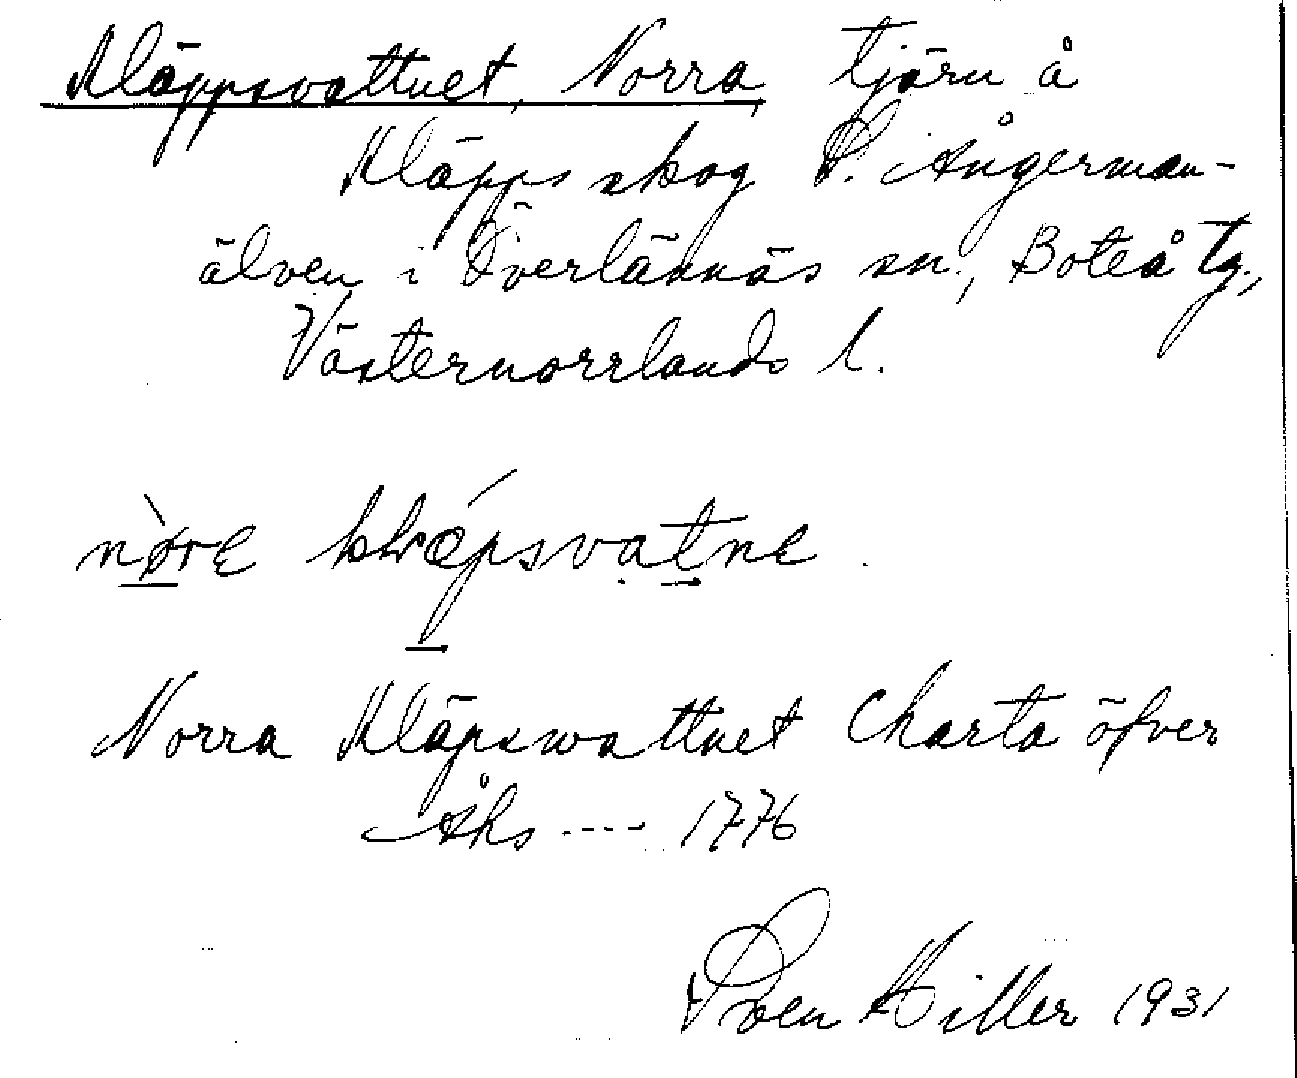 Kläppsvattnet, Norra, tjärn å
Kläpps skog S. Ångerman-
älven i Överlännäs sn., Boteå tg.,
Västernorrlands l.
nørε
Norra Kläpswattnet Charta öfver
Åhs ---- 1776
Sven Hiller 1931